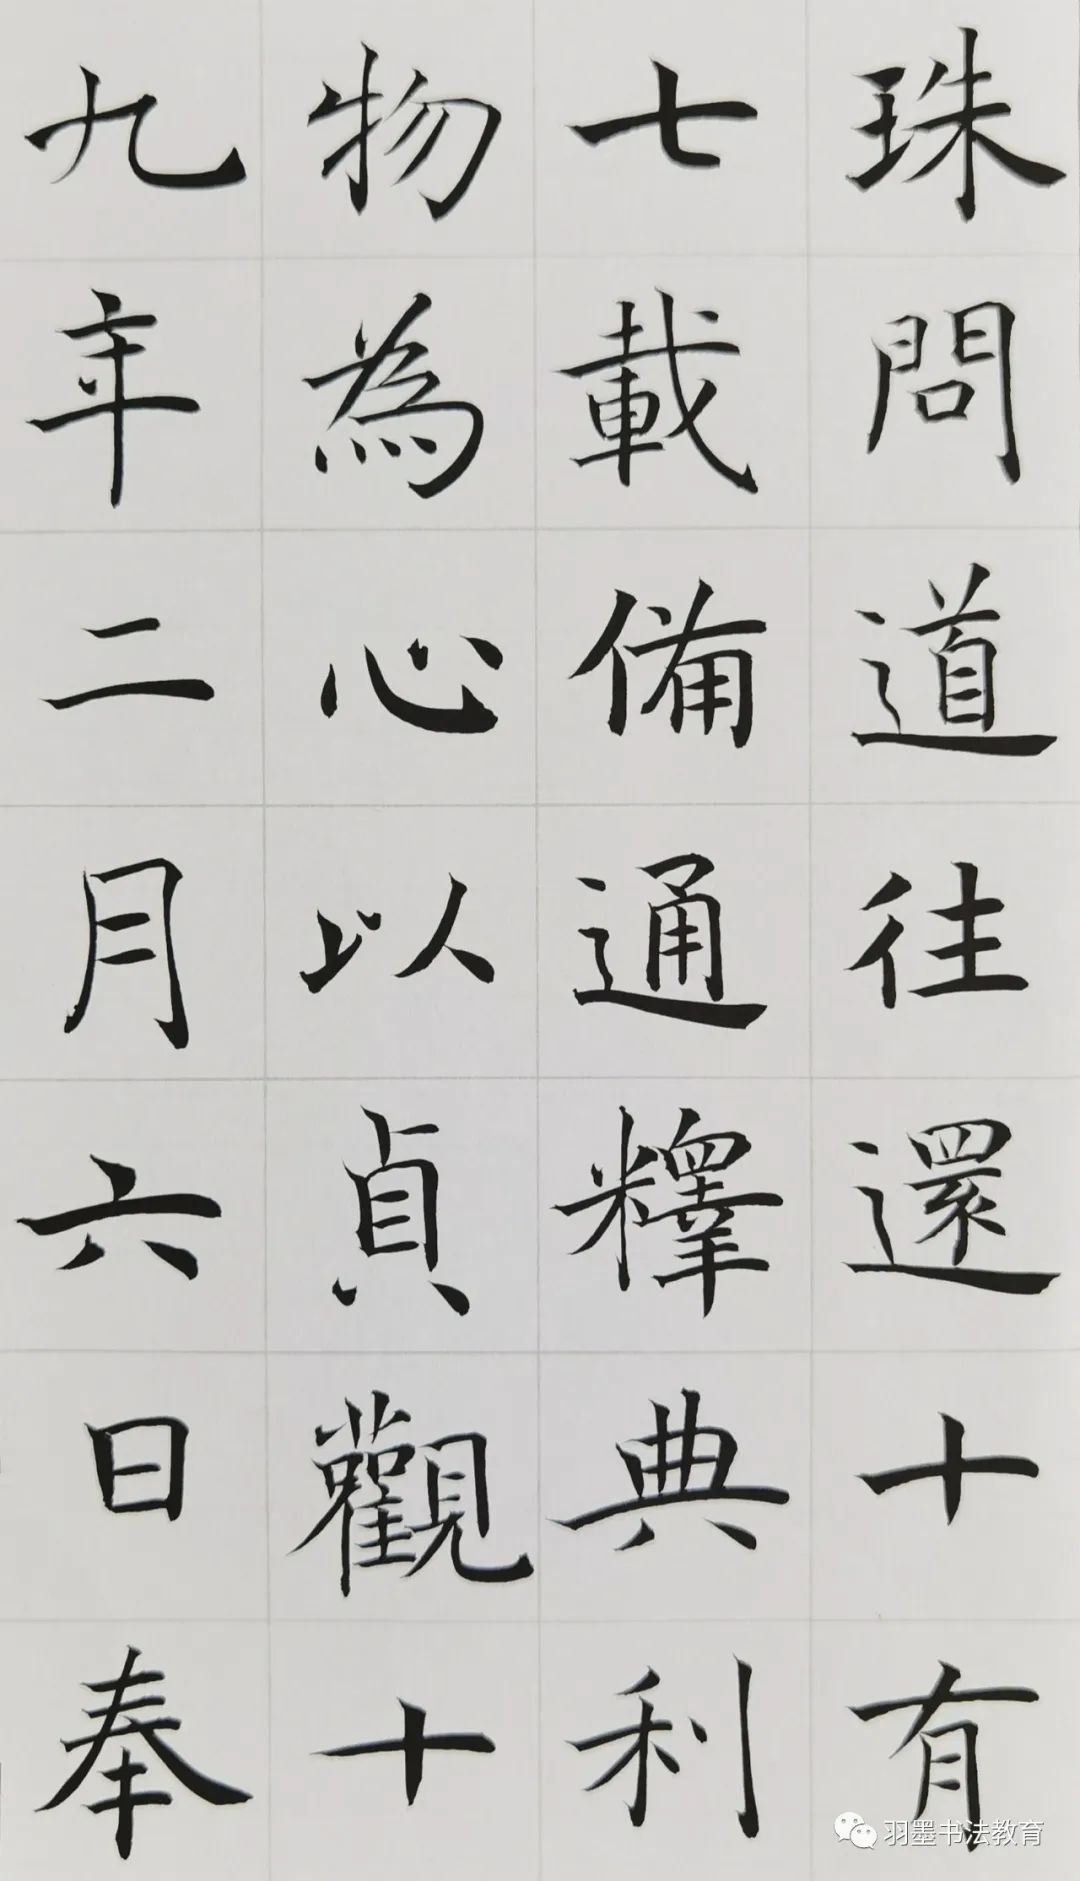 珠問道往還十有
七載備通釋典利
物為心以貞觀十
九年二月六日奉
羽墨书法教育